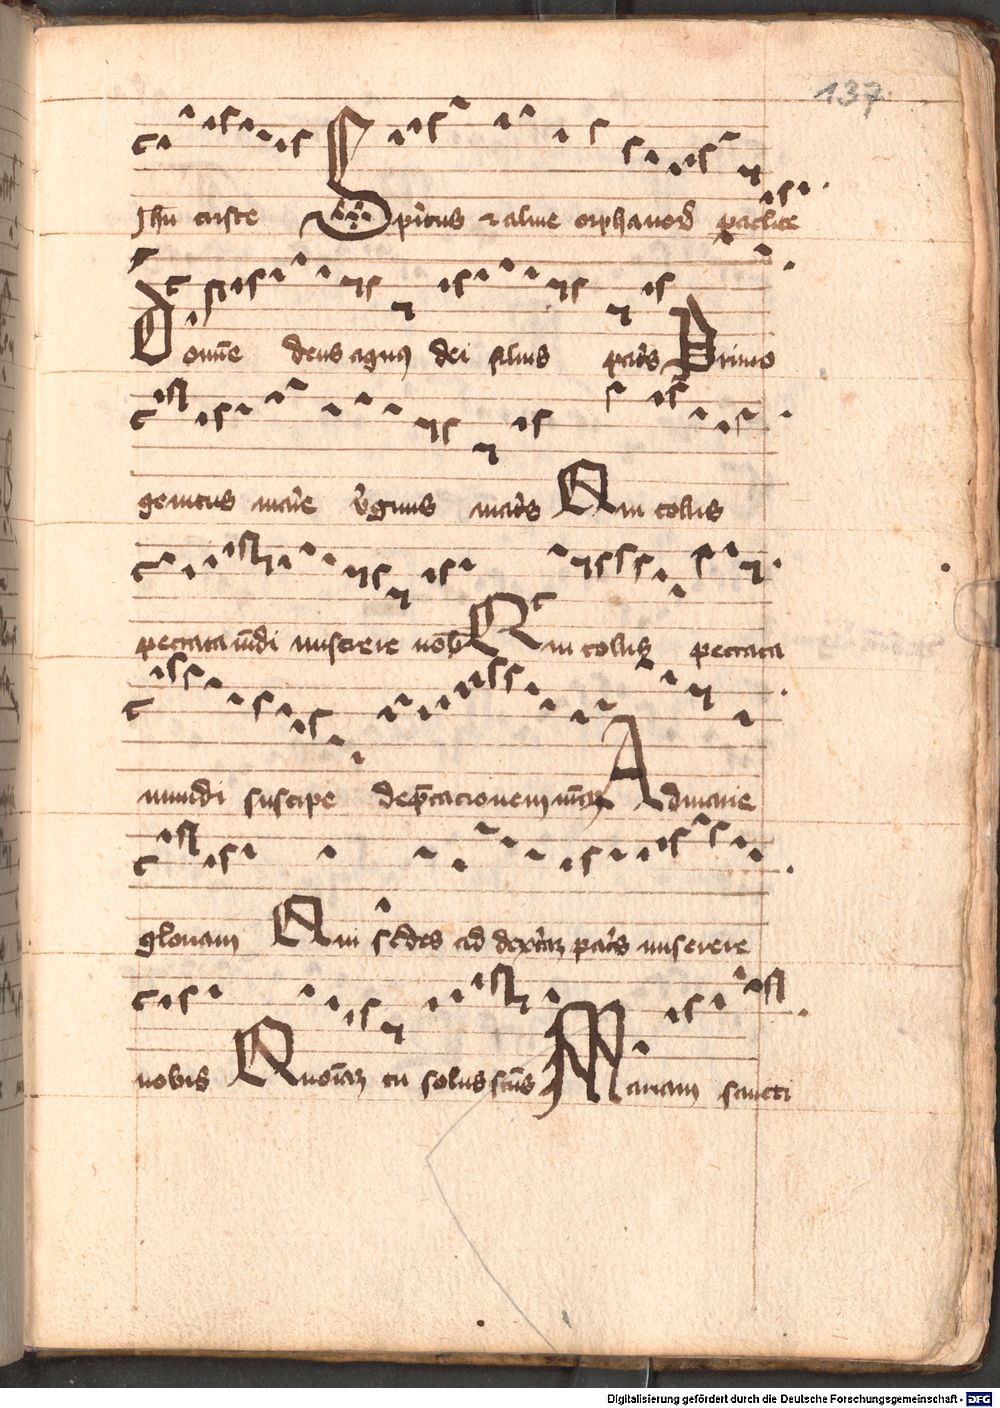 137
Jhu criste Spiritus et alme orphanorum paraclite
Domine deus agnus dei filius patris Primo
genitus marie virginis matris Qui tollis
peccata mundi miserere nobis Qui tollis peccata
mundi suscipe deprecacionem nostram Ad marie
gloriam Qui sedes ad dexteram patris miserere
nobis Quoniam tu solus sanctus Mariam sancti
Digitalisierung gefördert durch die Deutsche Forschungsgemeinschaft - DFG